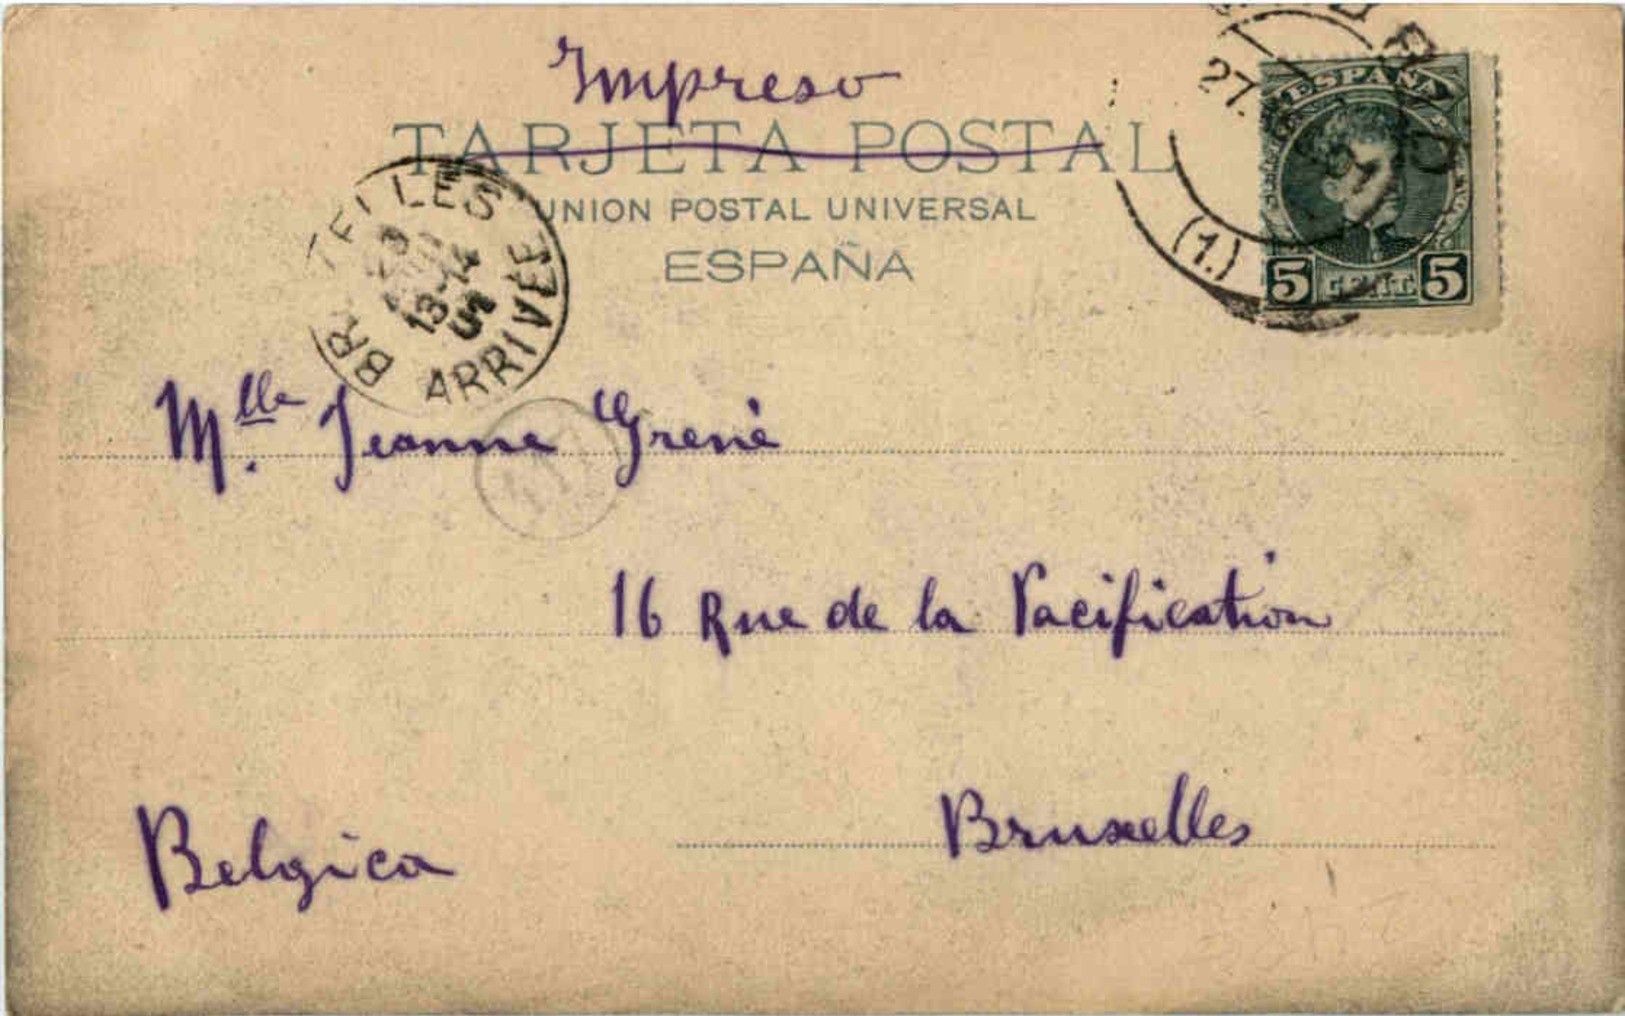 Impreso
TARJETA POSTAL
UNION POSTAL UNIVERSAL
ESPAÑA
27
(1.)
ESPAÑA
5 CENT. 5
13-14
ARRIVÉE
Mlle Jeanne Grené
16 Rue de la Pacification
Bruxelles
Belgica